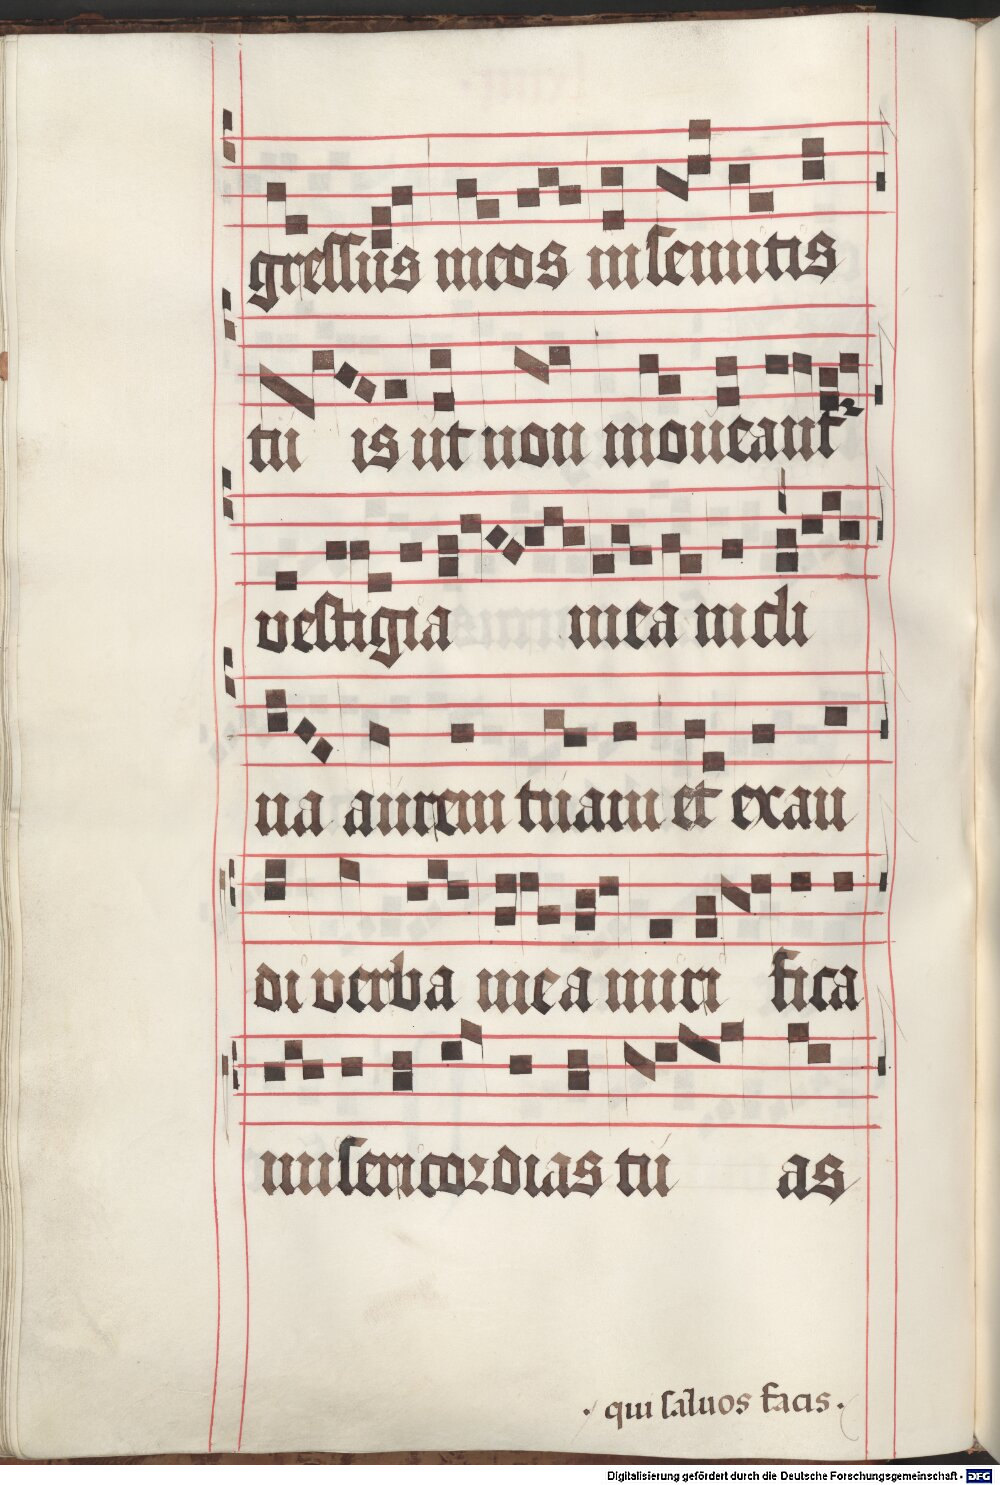 gressus meos in semitis
tu is ut non moueant̉
vestigia mea in cli
na aurem tuam et exau
di verba mea miri fica
misericordias tu as
· qui saluos facis ·
Digitalisierung gefördert durch die Deutsche Forschungsgemeinschaft - DFG